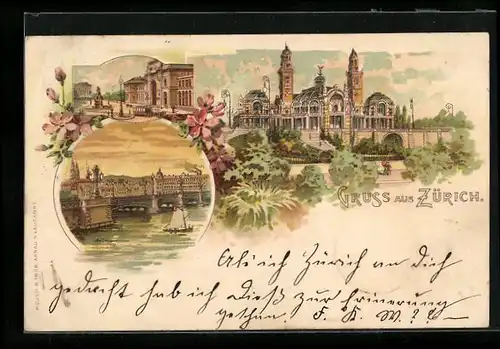 GRUSS AUS ZÜRICH.
Als ich Zürich an dich
gedacht hab ich dieß zur Erinerung
gethan. F. K. W. ? ?